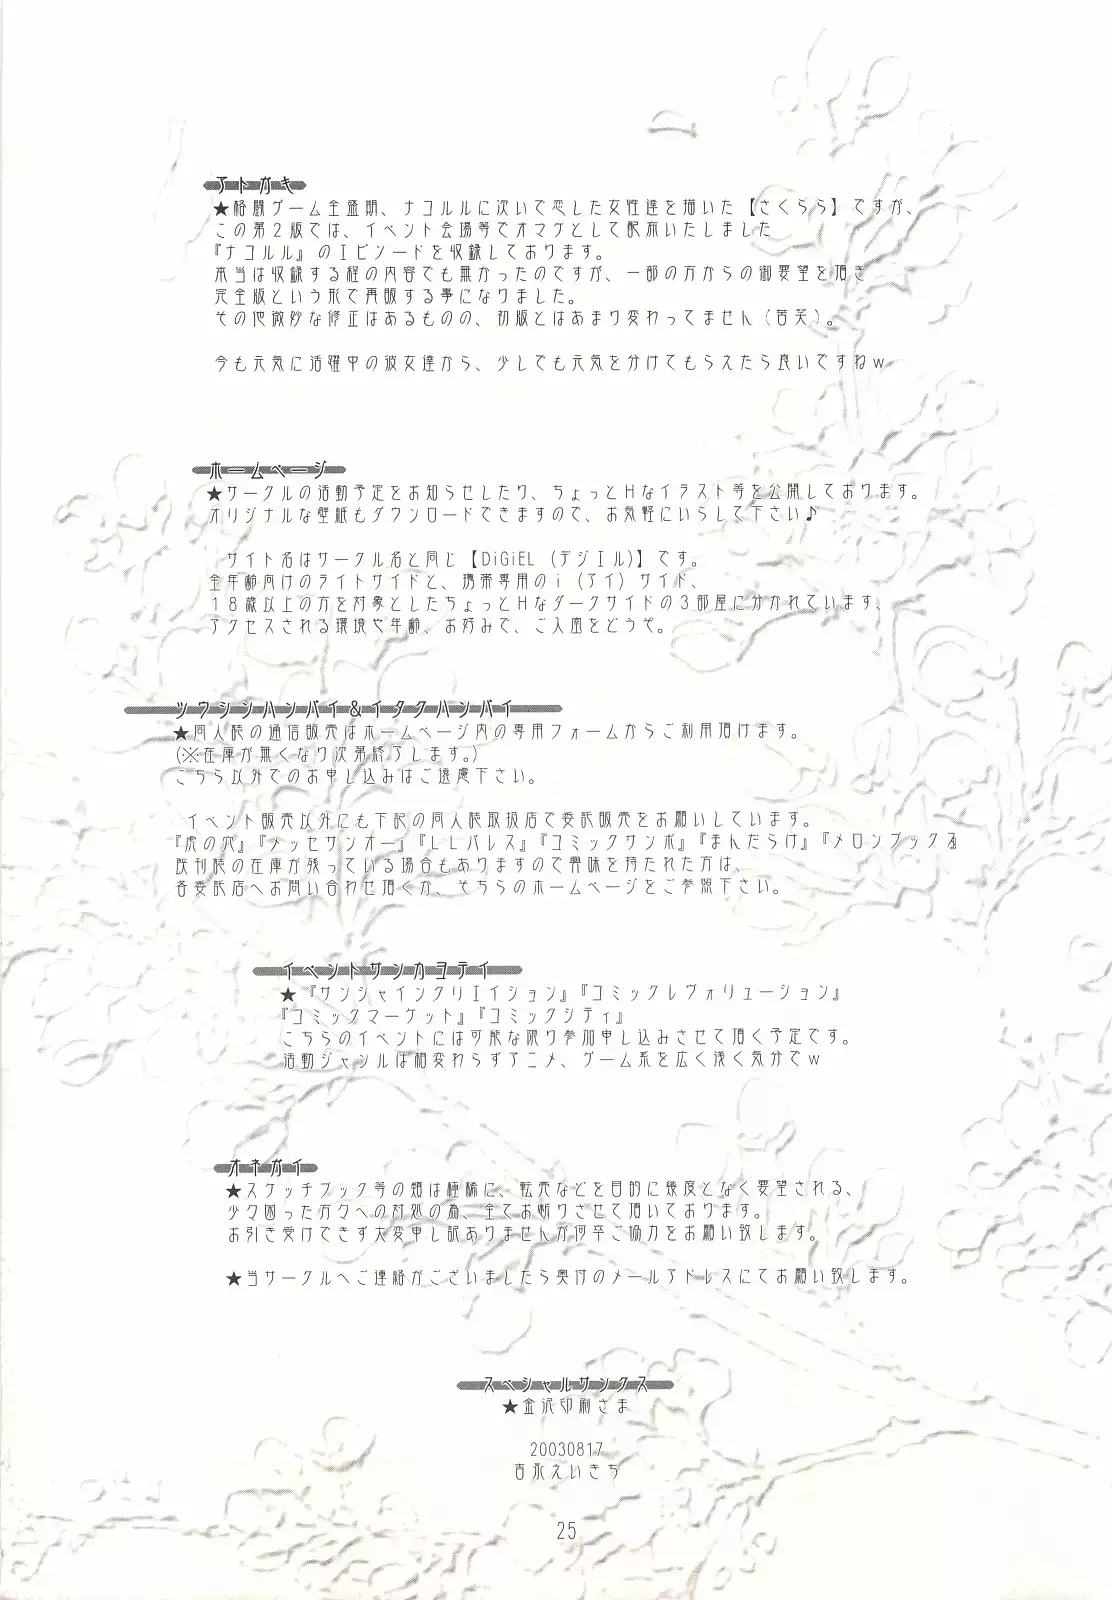 アトガキ
★格闘ゲーム全盛期、ナコルルに次いで恋した女性達を描いた【さくらら】ですが、
この第2版では、イベント会場等でオマケとして配布いたしました
『ナコルル』のエピソードを収録しております。
本当は収録する程の内容でも無かったのですが、一部の方からの御要望を頂き
完全版という形で再販する事になりました。
その他微妙な修正はあるものの、初版とはあまり変わってません（苦笑）。
今も元気に活躍中の彼女達から、少しでも元気を分けてもらえたら良いですねｗ
ホームページ
★サークルの活動予定をお知らせしたり、ちょっとHなイラスト等を公開しております。
オリジナルな壁紙もダウンロードできますので、お気軽にいらして下さい♪
サイト名はサークル名と同じ【DiGiEL（デジエル）】です。
全年齢向けのライトサイドと、携帯専用のｉ（アイ）サイド、
18歳以上の方を対象としたちょっとHなダークサイドの3部屋に分かれています、
アクセスされる環境や年齢、お好みで、ご入室をどうぞ。
ツウシンハンバイ＆イタクハンバイ
★同人誌の通信販売はホームページ内の専用フォームからご利用頂けます。
(※在庫が無くなり次第終了します。)
こちら以外でのお申し込みはご遠慮下さい。
イベント販売以外にも下記の同人誌取扱店で委託販売をお願いしています。
『虎の穴』『メッセサンオー』『LLパレス』『コミックサンポ』『まんだらけ』『メロンブックス』
既刊誌の在庫が残っている場合もありますので興味を持たれた方は、
各委託店へお問い合わせ頂くか、そちらのホームページをご参照下さい。
イベントサンカヨテイ
★『サンシャインクリエイション』『コミックレヴォリューション』
『コミックマーケット』『コミックシティ』
こちらのイベントには可能な限り参加申し込みさせて頂く予定です。
活動ジャンルは相変わらずアニメ、ゲーム系を広く浅く気分でｗ
オネガイ
★スケッチブック等の類は極稀に、転売などを目的に幾度となく要望される、
少々困った方々への対処の為、全てお断りさせて頂いております。
お引き受けできず大変申し訳ありませんが何卒ご協力をお願い致します。
★当サークルへご連絡がございましたら奥付のメールアドレスにてお願い致します。
スペシャルサンクス
★金沢印刷さま
20030817
吉永えいきち
25